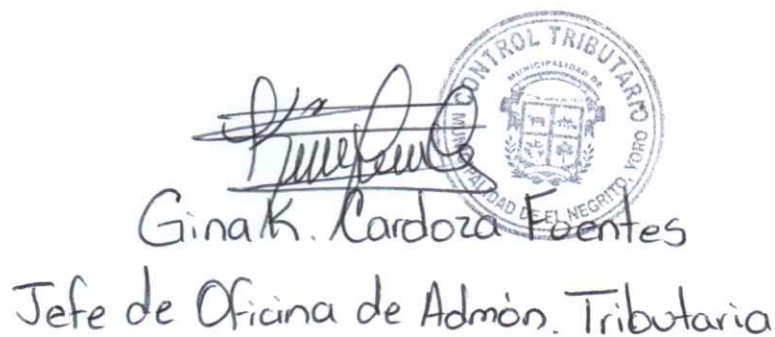 CONTROL TRIBUTARIO
MUNICIPALIDAD DE
MUNICIPALIDAD DE EL NEGRITO, YORO
Gina K. Cardoza Fuentes
Jefe de Oficina de Admón. Tributaria